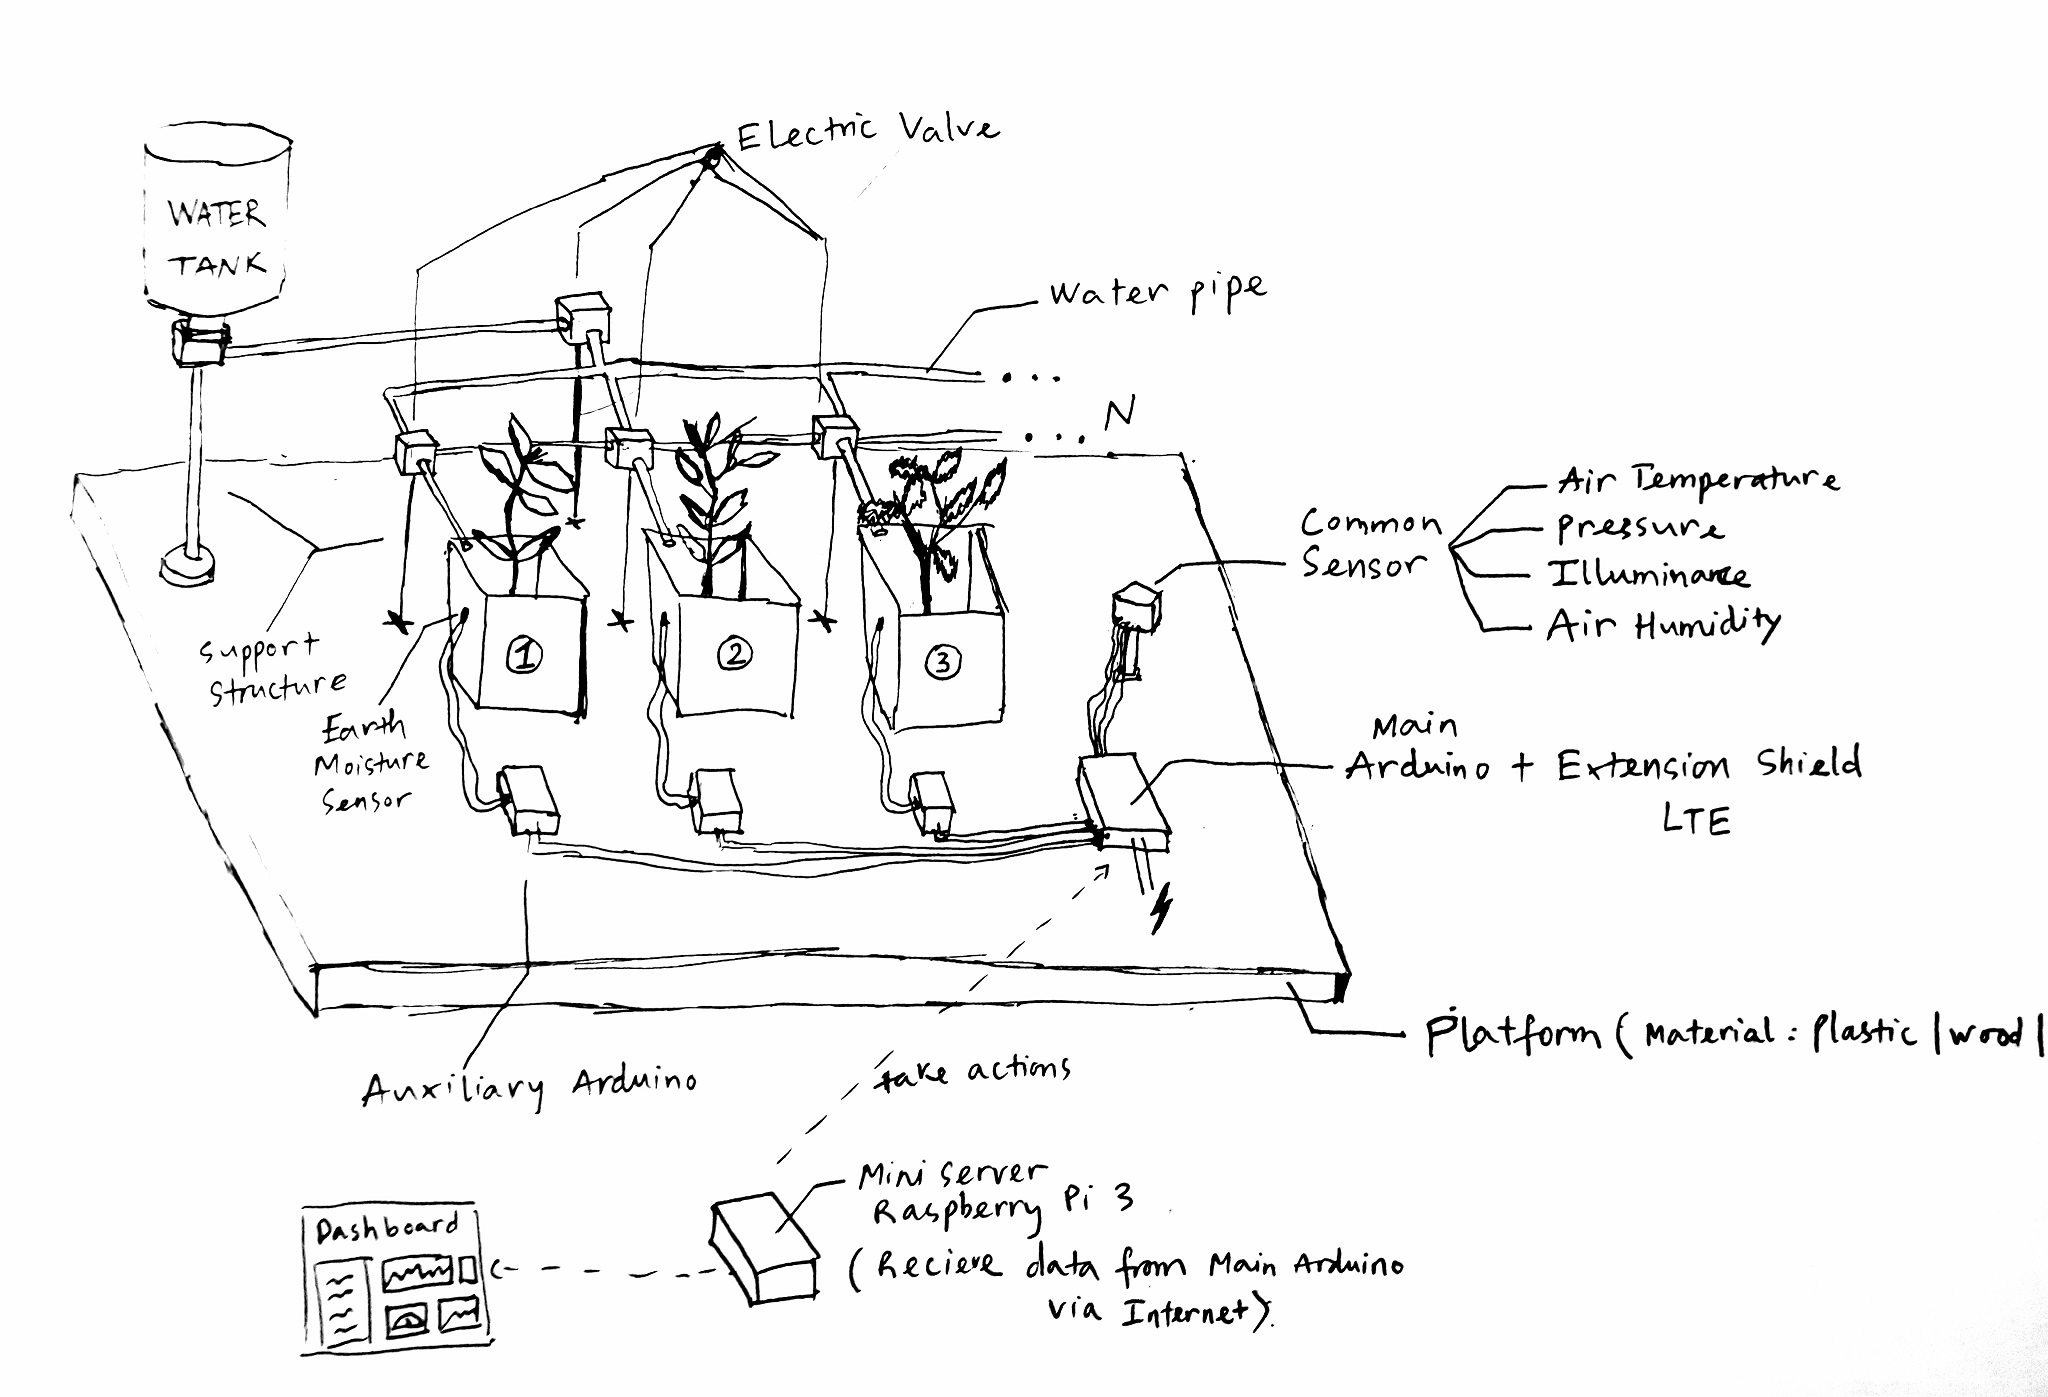 Electric Valve
WATER
TANK
Water pipe
N
Air Temperature
Common
Sensor
Pressure
Illuminance
Air Humidity
Support
Structure
Earth
Moisture
Sensor
1
2
3
Main
Arduino + Extension Shield
LTE
Platform (Material : Plastic | wood |
Auxiliary Arduino
take actions
Mini server
Raspberry Pi 3
(Recieve data from Main Arduino
via Internet).
Dashboard